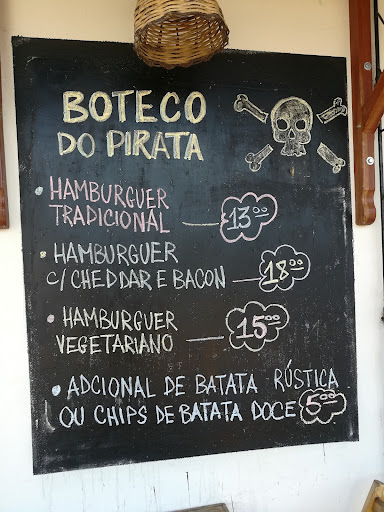 BOTECO
DO PIRATA
• HAMBURGUER
TRADICIONAL — 13,00
• HAMBURGUER
C/ CHEDDAR E BACON — 18,00
• HAMBURGUER
VEGETARIANO — 15,00
• ADCIONAL DE BATATA RÚSTICA
OU CHIPS DE BATATA DOCE 5,00